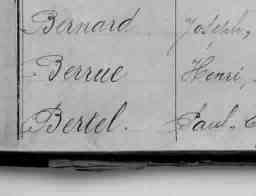 Bernard Joseph,
Berrue Henri,
Bertel. Paul.